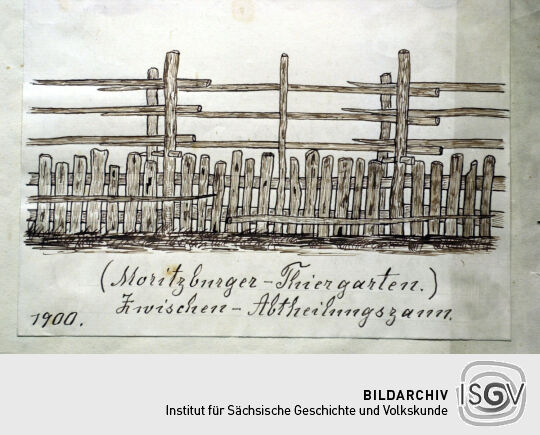 (Moritzburger-Thiergarten.)
Zwischen-Abtheilungszaun.
1900.
BILDARCHIV
Institut für Sächsische Geschichte und Volkskunde
ISGV